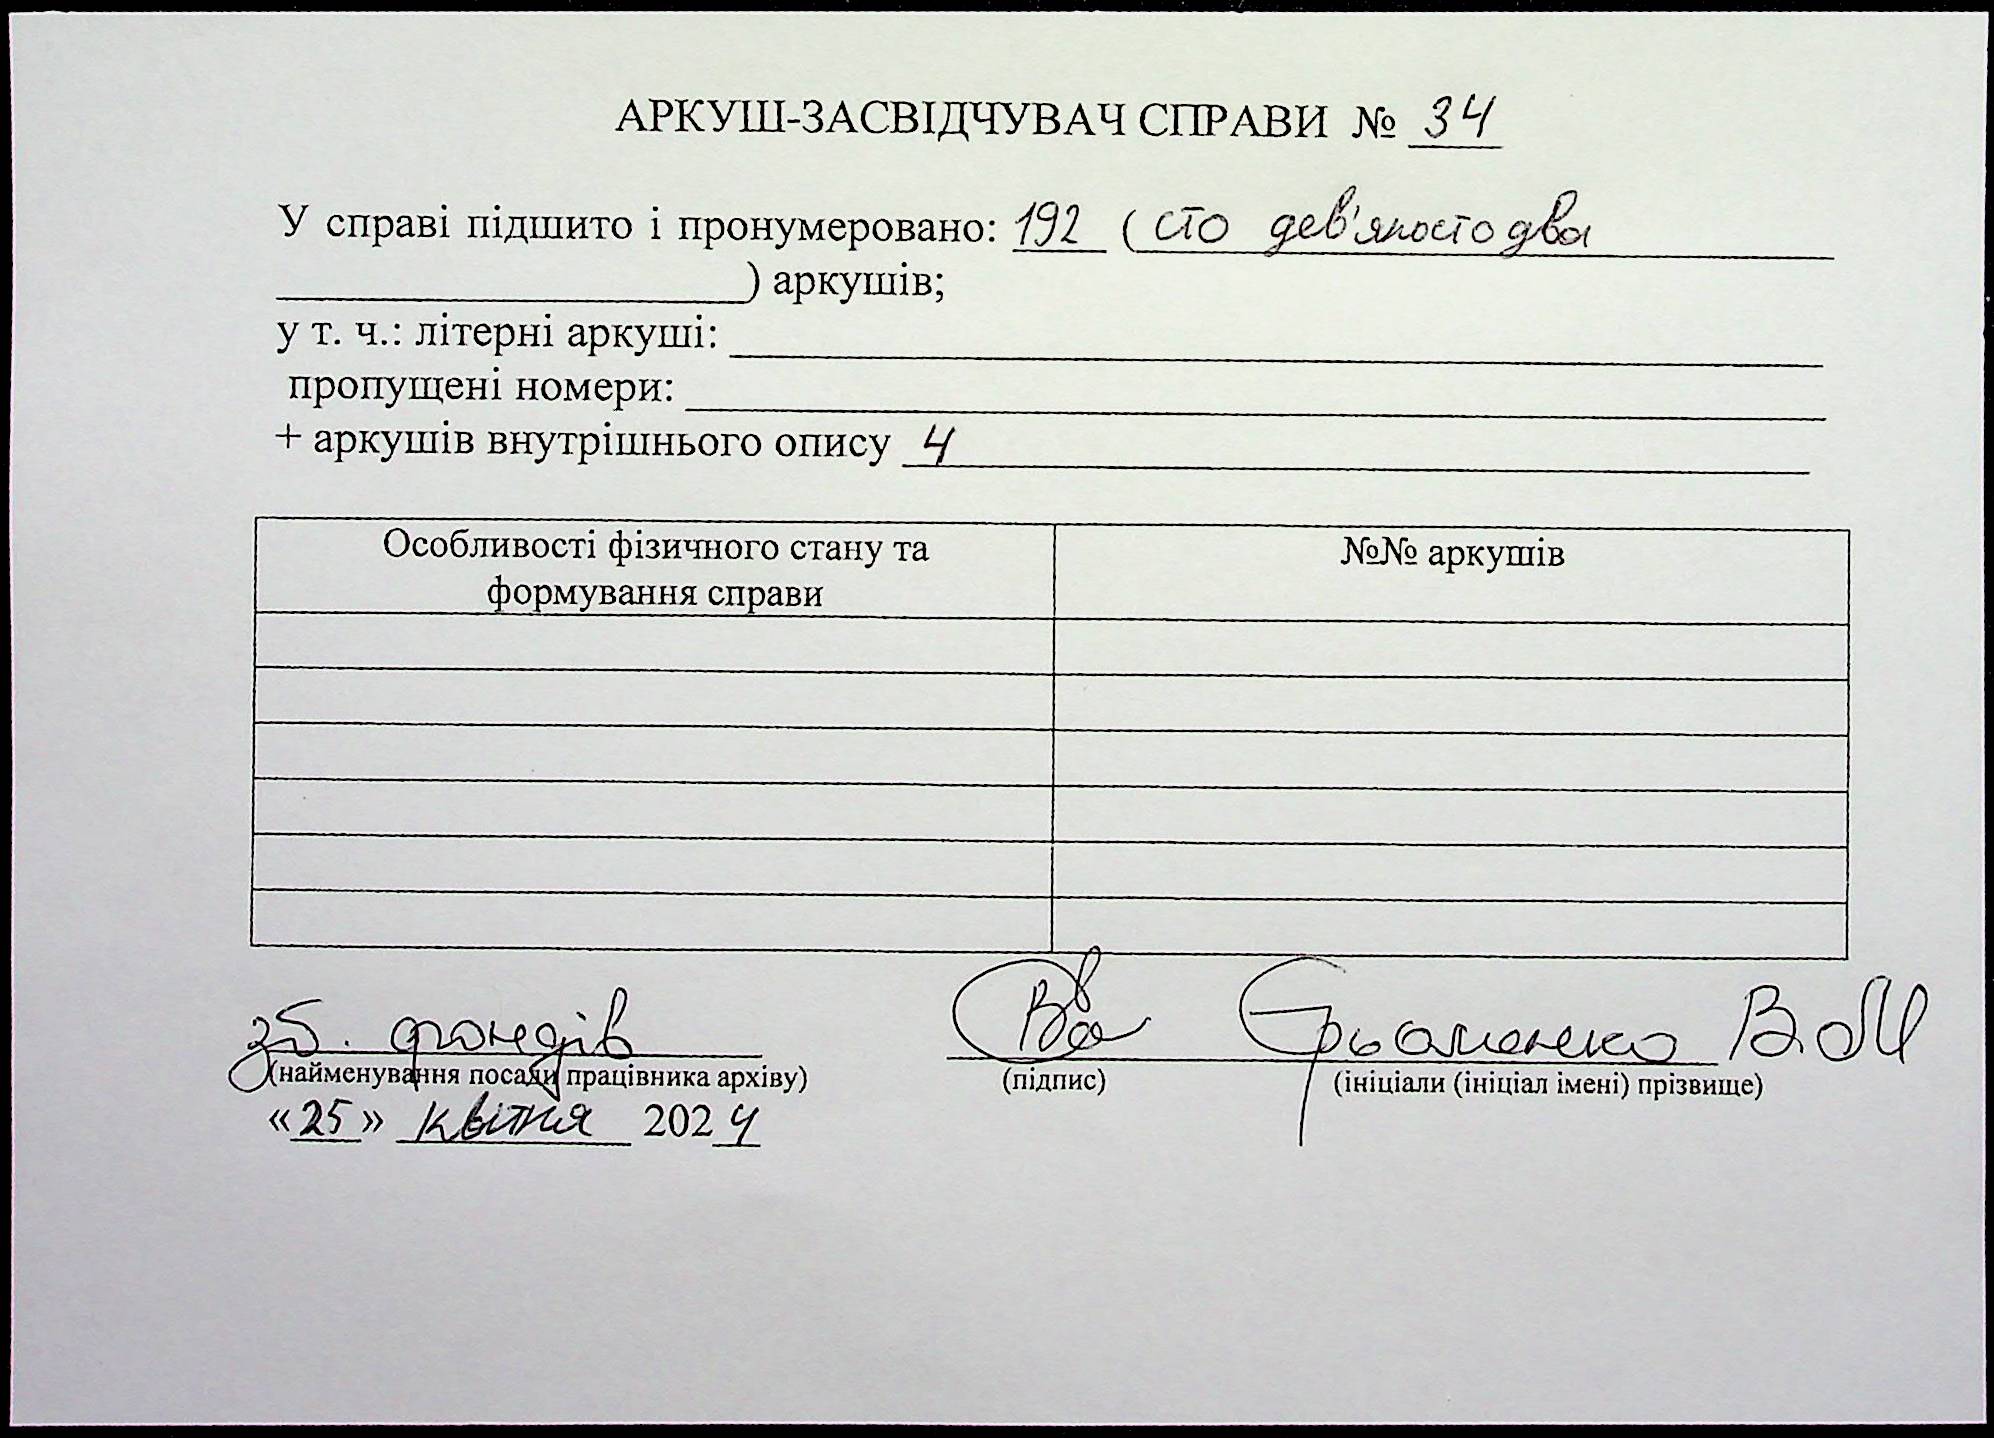 АРКУШ-ЗАСВІДЧУВАЧ СПРАВИ № 34
У справі підшито і пронумеровано: 192 (сто дев'яносто два
) аркушів;
у т. ч.: літерні аркуші:
пропущені номери:
+ аркушів внутрішнього опису 4
Особливості фізичного стану та
формування справи
№№ аркушів
зб. фондів
В.М
(найменування посади працівника архіву)
(підпис)
(ініціали (ініціал імені) прізвище)
«25» квітня 2024